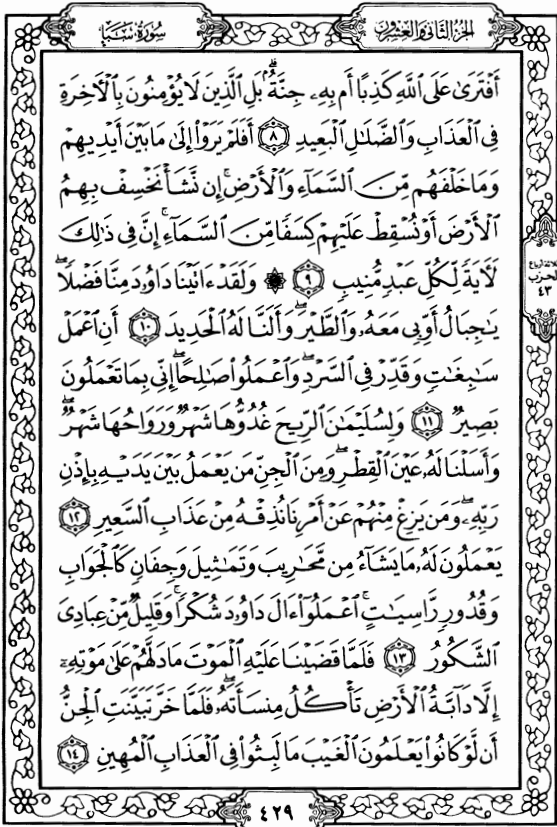 سُورَةُ سَبَإٍ
الجُزءُ الثَّانِي وَالعِشْرُونَ
أَفْتَرَىٰ عَلَى ٱللَّهِ كَذِبًا أَم بِهِۦ جِنَّةٌۢ ۗ بَلِ ٱلَّذِينَ لَا يُؤْمِنُونَ بِٱلْأَخِرَةِ
فِى ٱلْعَذَابِ وَٱلضَّلَٰلِ ٱلْبَعِيدِ ٨ أَفَلَمْ يَرَوْا۟ إِلَىٰ مَا بَيْنَ أَيْدِيهِمْ
وَمَا خَلْفَهُم مِّنَ ٱلسَّمَآءِ وَٱلْأَرْضِ ۚ إِن نَّشَأْ نَخْسِفْ بِهِمُ
ٱلْأَرْضَ أَوْ نُسْقِطْ عَلَيْهِمْ كِسَفًا مِّنَ ٱلسَّمَآءِ ۚ إِنَّ فِى ذَٰلِكَ
لَأٓيَةً لِّكُلِّ عَبْدٍ مُّنِيبٍ ٩ ۞ وَلَقَدْ ءَاتَيْنَا دَاوُۥدَ مِنَّا فَضْلًا ۖ
يَٰجِبَالُ أَوِّبِى مَعَهُۥ وَٱلطَّيْرَ ۖ وَأَلَنَّا لَهُ ٱلْحَدِيدَ ١٠ أَنِ ٱعْمَلْ
سَٰبِغَٰتٍ وَقَدِّرْ فِى ٱلسَّرْدِ ۖ وَٱعْمَلُوا۟ صَٰلِحًا ۖ إِنِّى بِمَا تَعْمَلُونَ
بَصِيرٌ ١١ وَلِسُلَيْمَٰنَ ٱلرِّيحَ غُدُوُّهَا شَهْرٌ وَرَوَاحُهَا شَهْرٌ ۖ
وَأَسَلْنَا لَهُۥ عَيْنَ ٱلْقِطْرِ ۖ وَمِنَ ٱلْجِنِّ مَن يَعْمَلُ بَيْنَ يَدَيْهِ بِإِذْنِ
رَبِّهِۦ ۖ وَمَن يَزِغْ مِنْهُمْ عَنْ أَمْرِنَا نُذِقْهُ مِنْ عَذَابِ ٱلسَّعِيرِ ١٢
يَعْمَلُونَ لَهُۥ مَا يَشَآءُ مِن مَّحَٰرِيبَ وَتَمَٰثِيلَ وَجِفَانٍ كَٱلْجَوَابِ
وَقُدُورٍ رَّاسِيَٰتٍ ۚ ٱعْمَلُوٓا۟ ءَالَ دَاوُۥدَ شُكْرًا ۚ وَقَلِيلٌ مِّنْ عِبَادِىَ
ٱلشَّكُورُ ١٣ فَلَمَّا قَضَيْنَا عَلَيْهِ ٱلْمَوْتَ مَا دَلَّهُمْ عَلَىٰ مَوْتِهِۦٓ
إِلَّا دَآبَّةُ ٱلْأَرْضِ تَأْكُلُ مِنسَأَتَهُۥ ۖ فَلَمَّا خَرَّ تَبَيَّنَتِ ٱلْجِنُّ
أَن لَّوْ كَانُوا۟ يَعْلَمُونَ ٱلْغَيْبَ مَا لَبِثُوا۟ فِى ٱلْعَذَابِ ٱلْمُهِينِ ١٤
ثلاثة أرباع
الحزب
٤٣
٤٢٩